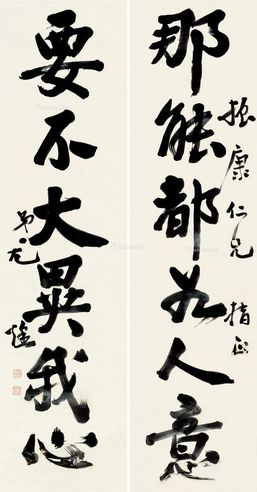 那能都如人意
振康仁兄 指正
要不大異我心
弟尤